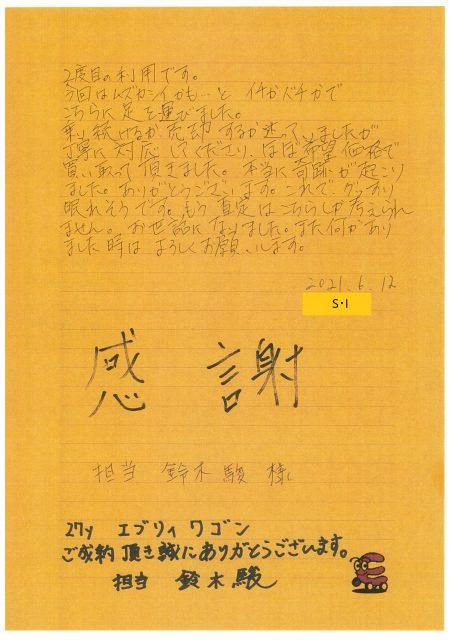 2度目の利用です。
今回はムズカシイかも…と イチかバチかで
こちらに足を運びました。
乗り続けるか売却するか迷っていましたが
丁寧に対応してくださり、ほぼ希望価格で
買い取って頂きました。本当に奇跡が起こり
ました。ありがとうございます。これでグッスリ
眠れそうです。もう査定はこちらしか考えられ
ません。お世話になりました。また何かあり
ました時はよろしくお願いします。
2021.6.12
S・I
感謝
担当 鈴木駿 様
27y エブリィ ワゴン
ご成約頂き誠にありがとうございます。
担当 鈴木駿